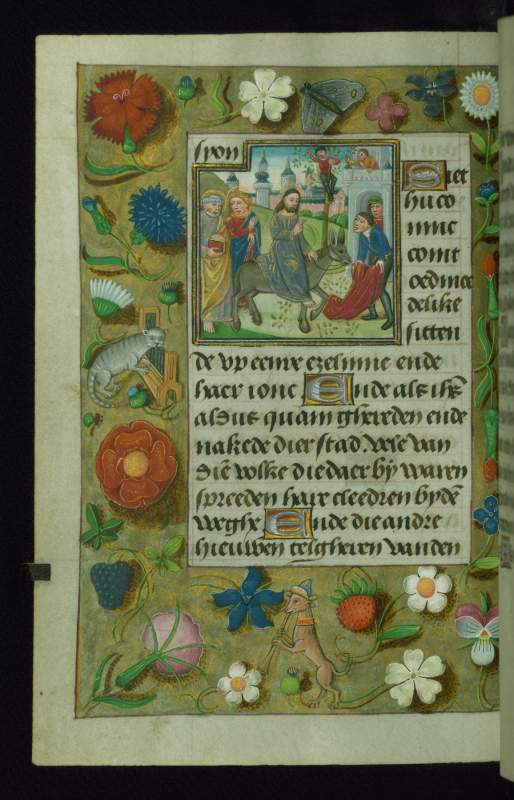 syon
Siet
hu co
ninc
comt
oedmoe
delike
sitten
de vp eenre ezelinne ende
haer ionc Ende als ihs
aldus quam ghereden ende
nakede dier stad. vele van
diē volke die daer bÿ waren
spreeden haer cleedren bydē
weghe Ende die andre
hieuwen telgheren van den